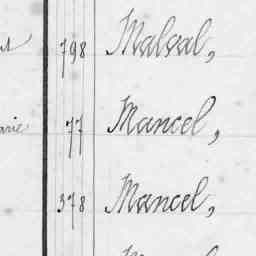 798 Malval,
77 Mancel,
378 Mancel,